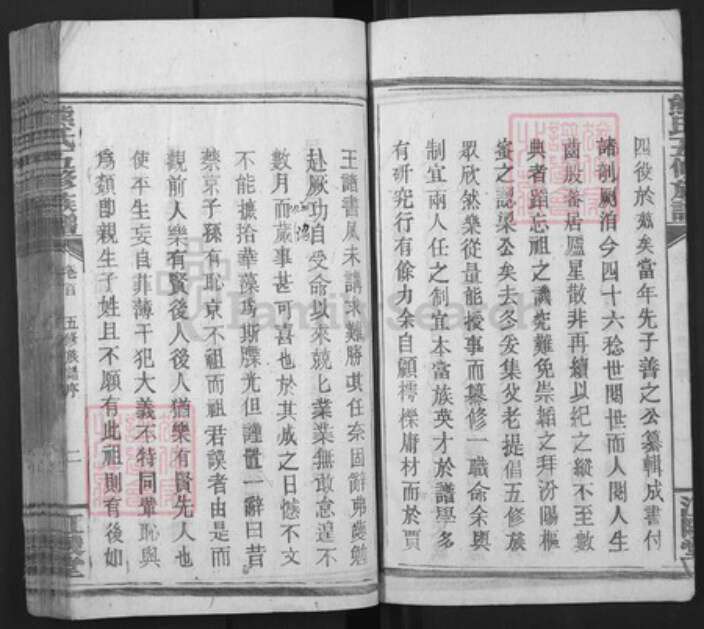 熊氏五修族譜
江陵堂
四役於茲矣當年先子善之公纂輯成書付
諸剞劂泊今四十六稔世閱世而人閱人生
齒殷蕃居廬星散非再續以紀之縱不至數
典者蹈忘祖之譏究難免崇韜之拜汾陽樞
密之認梁公矣去冬爰集父老提倡五修族
眾欣然樂從量能授事而纂修一職命余與
制宜兩人任之制宜本富族英才於譜學多
有研究行有餘力余自顧樗櫟庸材而於賈
王譜書夙未講求難勝其任奈固辭弗獲勉
赴厥功自受命以來兢匕業業無敢怠遑不
數月而蕆事甚可喜也於其成之日憾不文
不能擴拾華藻為斯牒光但謹置一辭曰昔
蔡京子孫有恥京不祖而祖君謨者由是而
觀前人樂有賢後人後人猶樂有賢先人也
使平生妄自菲薄干犯大義不特同輩恥與
為類即親生子姓且不願有此祖則有後如
熊氏五修族譜
卷首
五修族譜序
二
江陵堂
FamilySearch